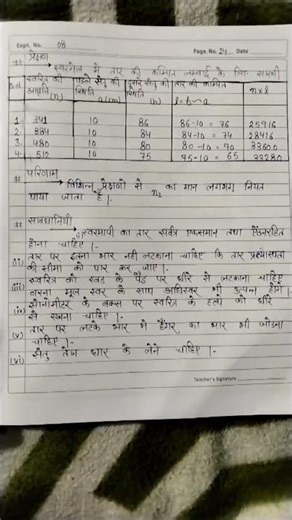 Expt. No. 08
Page. No. 24 Date
प्रेक्षण
स्वरमापी में तार की कम्पित लम्बाई के लिए सारणी
स्वरित्र की पहले सेतु की दूसरे सेतु की तार की कम्पित n×l
आवृत्ति स्थिति स्थिति लम्बाई
(n) a(cm) (b) l = b-a
1. 341 10 86 86-10 = 76 25916
2. 384 10 84 84-10 = 74 28416
3. 480 10 80 80-10 = 70 33600
4. 512 10 75 75-10 = 65 33280
परिणाम
विभिन्न प्रेक्षणों से का मान लगभग नियत
पाया जाता है।
सावधानियाँ
स्वरमापी का तार सर्वत्र एकसमान तथा ऐंठनरहित
होना चाहिए।-
(ii) तार पर इतना भार नहीं लटकाना चाहिए कि तार प्रत्यास्थता
की सीमा को पार कर जाए।-
(iii) स्वरित्र को रबड़ के पैड पर धीरे से चाहिए
वरना मूल स्वर के साथ अधिस्वर भी उत्पन्न होंगे।-
(iv) सोनोमीटर के बक्स पर स्वरित्र के को धीरे
से रखना चाहिए।-
(v) तार पर लटके भार में हैंगर का भार भी जोड़ना
चाहिए।-
(vi) सेतु तेज धार के लेने चाहिए।-
Teacher's Signature